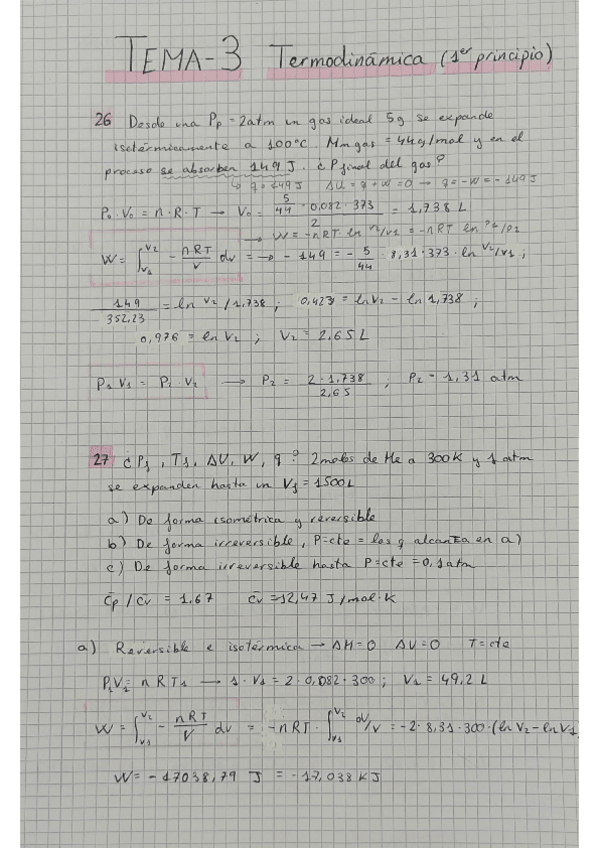 TEMA-3 Termodinámica (1er principio)
26 Desde una Pp = 2atm un gas ideal 5g se expande
isotérmicamente a 100°C. Mm gas = 44g/mol y en el
proceso se absorben 149 J. ¿P final del gas?
↳ q = 149 J ΔU = q + W = 0 → q = -W = -149 J
P₀·V₀ = n·R·T → V₀ = (5/44 · 0,082 · 373)/2 = 1,738 L
→ W = -nRT ln V2/V1 = -nRT ln P1/P2
W = ∫V1^V2 - nRT/V dv = → -149 = - 5/44 · 8,31·373·ln V2/V1 ;
149/352,23 = ln V2/1,738 ; 0,423 = ln V2 - ln 1,738 ;
0,976 = ln V2 ; V2 = 2,65 L
P1 V1 = P2 · V2 → P2 = 2·1,738/2,65 ; P2 = 1,31 atm
27 ¿Pf, Tf, ΔU, W, q? 2moles de He a 300K y 1 atm
se expanden hasta un Vf = 1500L
a) De forma isométrica y reversible
b) De forma irreversible, P=cte = los q alcanza en a)
c) De forma irreversible hasta P=cte = 0,1atm
C̄p / C̄v = 1,67 C̄v = 12,47 J/mol·K
a) Reversible e isotérmica → ΔH=0 ΔU=0 T=cte
P1V1 = nRT1 → 1·V1 = 2·0,082·300 ; V1 = 49,2 L
W = ∫V1^V2 - nRT/V dv = -nRT · ∫V1^V2 dV/V = -2·8,31·300·(ln V2 - ln V1
W = -17038,79 J = -17,038 KJ